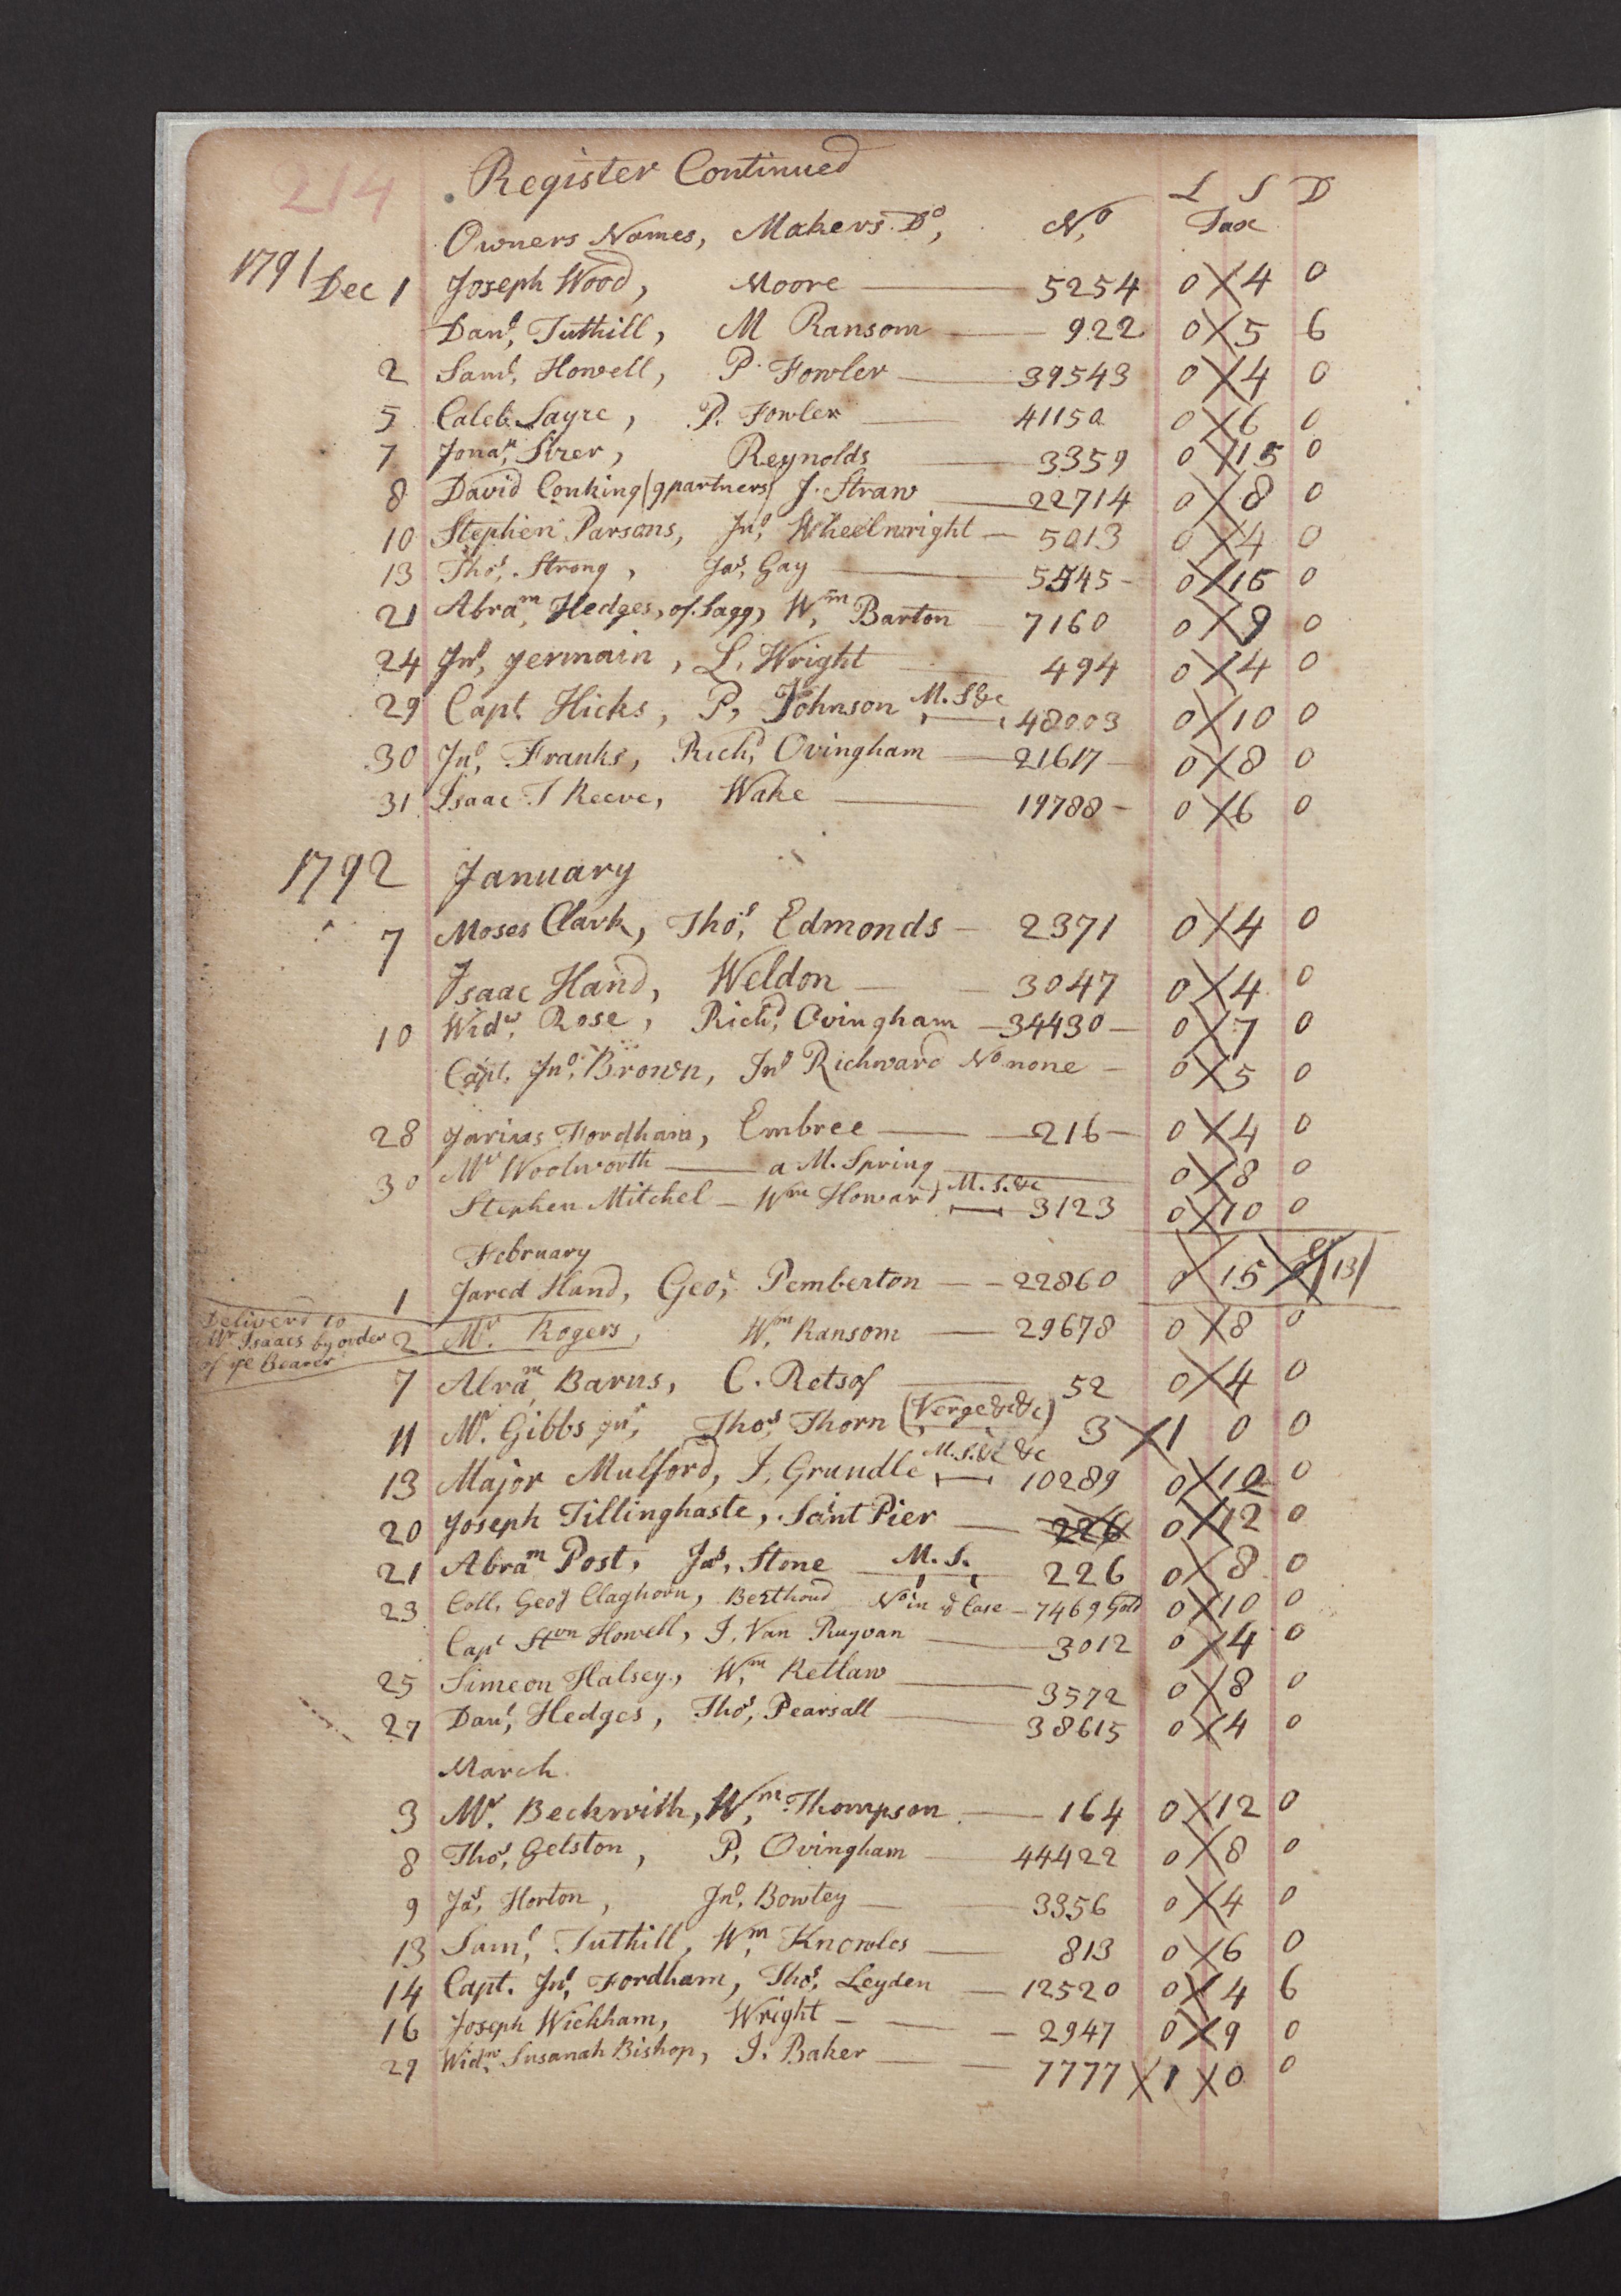 214 Register Continued
L S D
Owners Names, Makers Do, No, Tax
1791 Dec 1 Joseph Wood, Moore — 5254 0 4 0
Danl, Tuthill, M Ransom — 922 0 5 6
2 Saml, Howell, P. Fowler — 39543 0 4 0
5 Caleb Sayre, P. Fowler — 41150 0 6 0
7 Jonan, Strer, Reynolds — 3359 0 15 0
8 David Conking (9 partners) J. Straw — 22714 0 8 0
10 Stephen Parsons, Jno, Wheelwright — 5013 0 4 0
13 Thos, Strong, Jas, Gay — 5545 - 0 15 0
21 Abram, Hedges, of Sagg, Wm, Barton — 7160 0 9 0
24 Jno, Jermain, L, Wright — 494 0 4 0
29 Capt Hicks, P, Johnson M. S &c — 48003 0 10 0
30 Jno, Franks, Richd, Ovingham — 21617 — 0 8 0
31 Isaac T Reeve, Wake — 19788 - 0 6 0
1792 January
7 Moses Clark, Thos, Edmonds — 2371 0 4 0
Isaac Hand, Weldon — — 3047 0 4 0
10 Widw, Rose, Richd, Ovingham — 34430 — 0 7 0
Capt, Jno, Brown, Jno Richward No none — 0 5 0
28 Jarius Fordham, Embree — — 216 — 0 4 0
30 Mr Woolworth — a M. Spring — 0 8 0
Stephen Mitchel — Wm Howard M. S. &c — 3123 0 10 0
February
1 Jared Hand, Geo, Pemberton — — 22860 0 15 /13/
Deliverd to
Mr Isaacs by order
of ye Bearer
2 Mr. Rogers, Wm, Ransom — 29678 0 8 0
7 Abram, Barns, C. Retsof — 52 0 4 0
11 Mr. Gibbs Jnr, Thos, Thorn (Verge &c &c) 3 1 0 0
13 Major Mulford, J, Grundle M. S. &c &c — 10289 0 10 0
20 Joseph Tillinghaste, Saint Pier — 226 0 12 0
21 Abram Post, Jas, Stone — M. S. — 226 0 8 0
23 Coll, Geo Claghorn, Berthoud No in ye Case — 7469 Gold 0 10 0
Capt Stvn Howell, J, Van Ruyvan — 3012 0 4 0
25 Simeon Halsey, Wm, Retlaw — 3572 0 8 0
27 Danl, Hedges, Thos, Pearsall — 38615 0 4 0
March
3 Mr. Beckwith, Wm, Thompson — 164 0 12 0
8 Thos, Gelston, P, Ovingham — 44422 0 8 0
9 Jas, Horton, Jno, Bowtey — 3356 0 4 0
13 Saml, Tuthill, Wm, Knowles — 813 0 6 0
14 Capt. Jno, Fordham, Thos, Leyden — 12520 0 4 6
16 Joseph Wickham, Wright — — — 2947 0 9 0
29 Widw, Susanah Bishop, J. Baker — — 7777 1 0 0